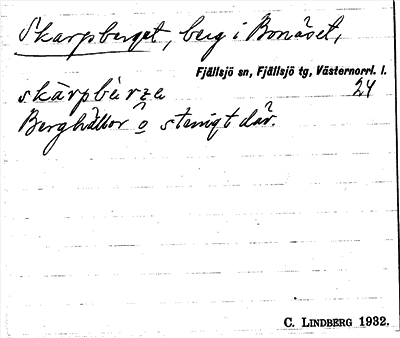 Skarpberget, berg i Bonäset,
Fjällsjö sn, Fjällsjö tg, Västernorrl. l.
24
skàrpbàrʒa
Berghällor ô stenigt där.
C. LINDBERG 1932.